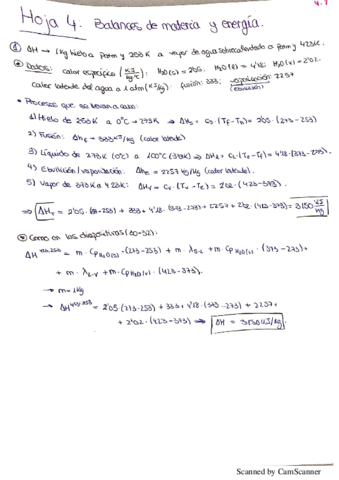 4.7
Hoja 4. Balances de materia y energía.
① ΔH → 1kg hielo a Patm y 253K a vapor de agua sobrecalentado a Patm y 423K.
Datos: calor específico (KJ/kg·K): H₂O(s) = 2'05. H₂O(l) = 4'18. H₂O(v) =
calor latente del agua a 1 atm (KJ/kg): fusión: 333; vaporización: 2257
(ebullición)
• Procesos que se llevan a cabo:
1) Hielo de 253K a 0ºC → 273K → ΔHs = Cs·(Tf-To) = 2'05·(273-253)
2) Fusión: ΔHf = 333 KJ/kg (calor latente)
3) Líquido de 273K (0ºC) a 100ºC (373K) ⇒ ΔHl = CL·(Te-Tf) = 4'18·(373-273).
4) Ebullición/vaporización: ΔHe = 2257 KJ/kg (calor latente).
5) Vapor de 373K a 423K: ΔHv = Cv·(Tv-Te) = 2'02·(423-373).
⇒ ΔHT = 2'05·(273-253) + 333 + 4'18·(373-273) + 2257 + 2'02·(423-373) = 3150 KJ/kg
Como en las diapositivas (30-32):
ΔH = m·Cp H₂O(s)·(273-253) + m·λs-l + m·Cp H₂O(l)·(373-273) +
+ m·λl-v + m·Cp H₂O(v)·(423-373).
→ m = 1kg
→ ΔH = 2'05·(273-253) + 333 + 4'18·(373-273) + 2257 +
+ 2'02·(423-373) ⇒ ΔH = 3150 KJ/kg
Scanned by CamScanner